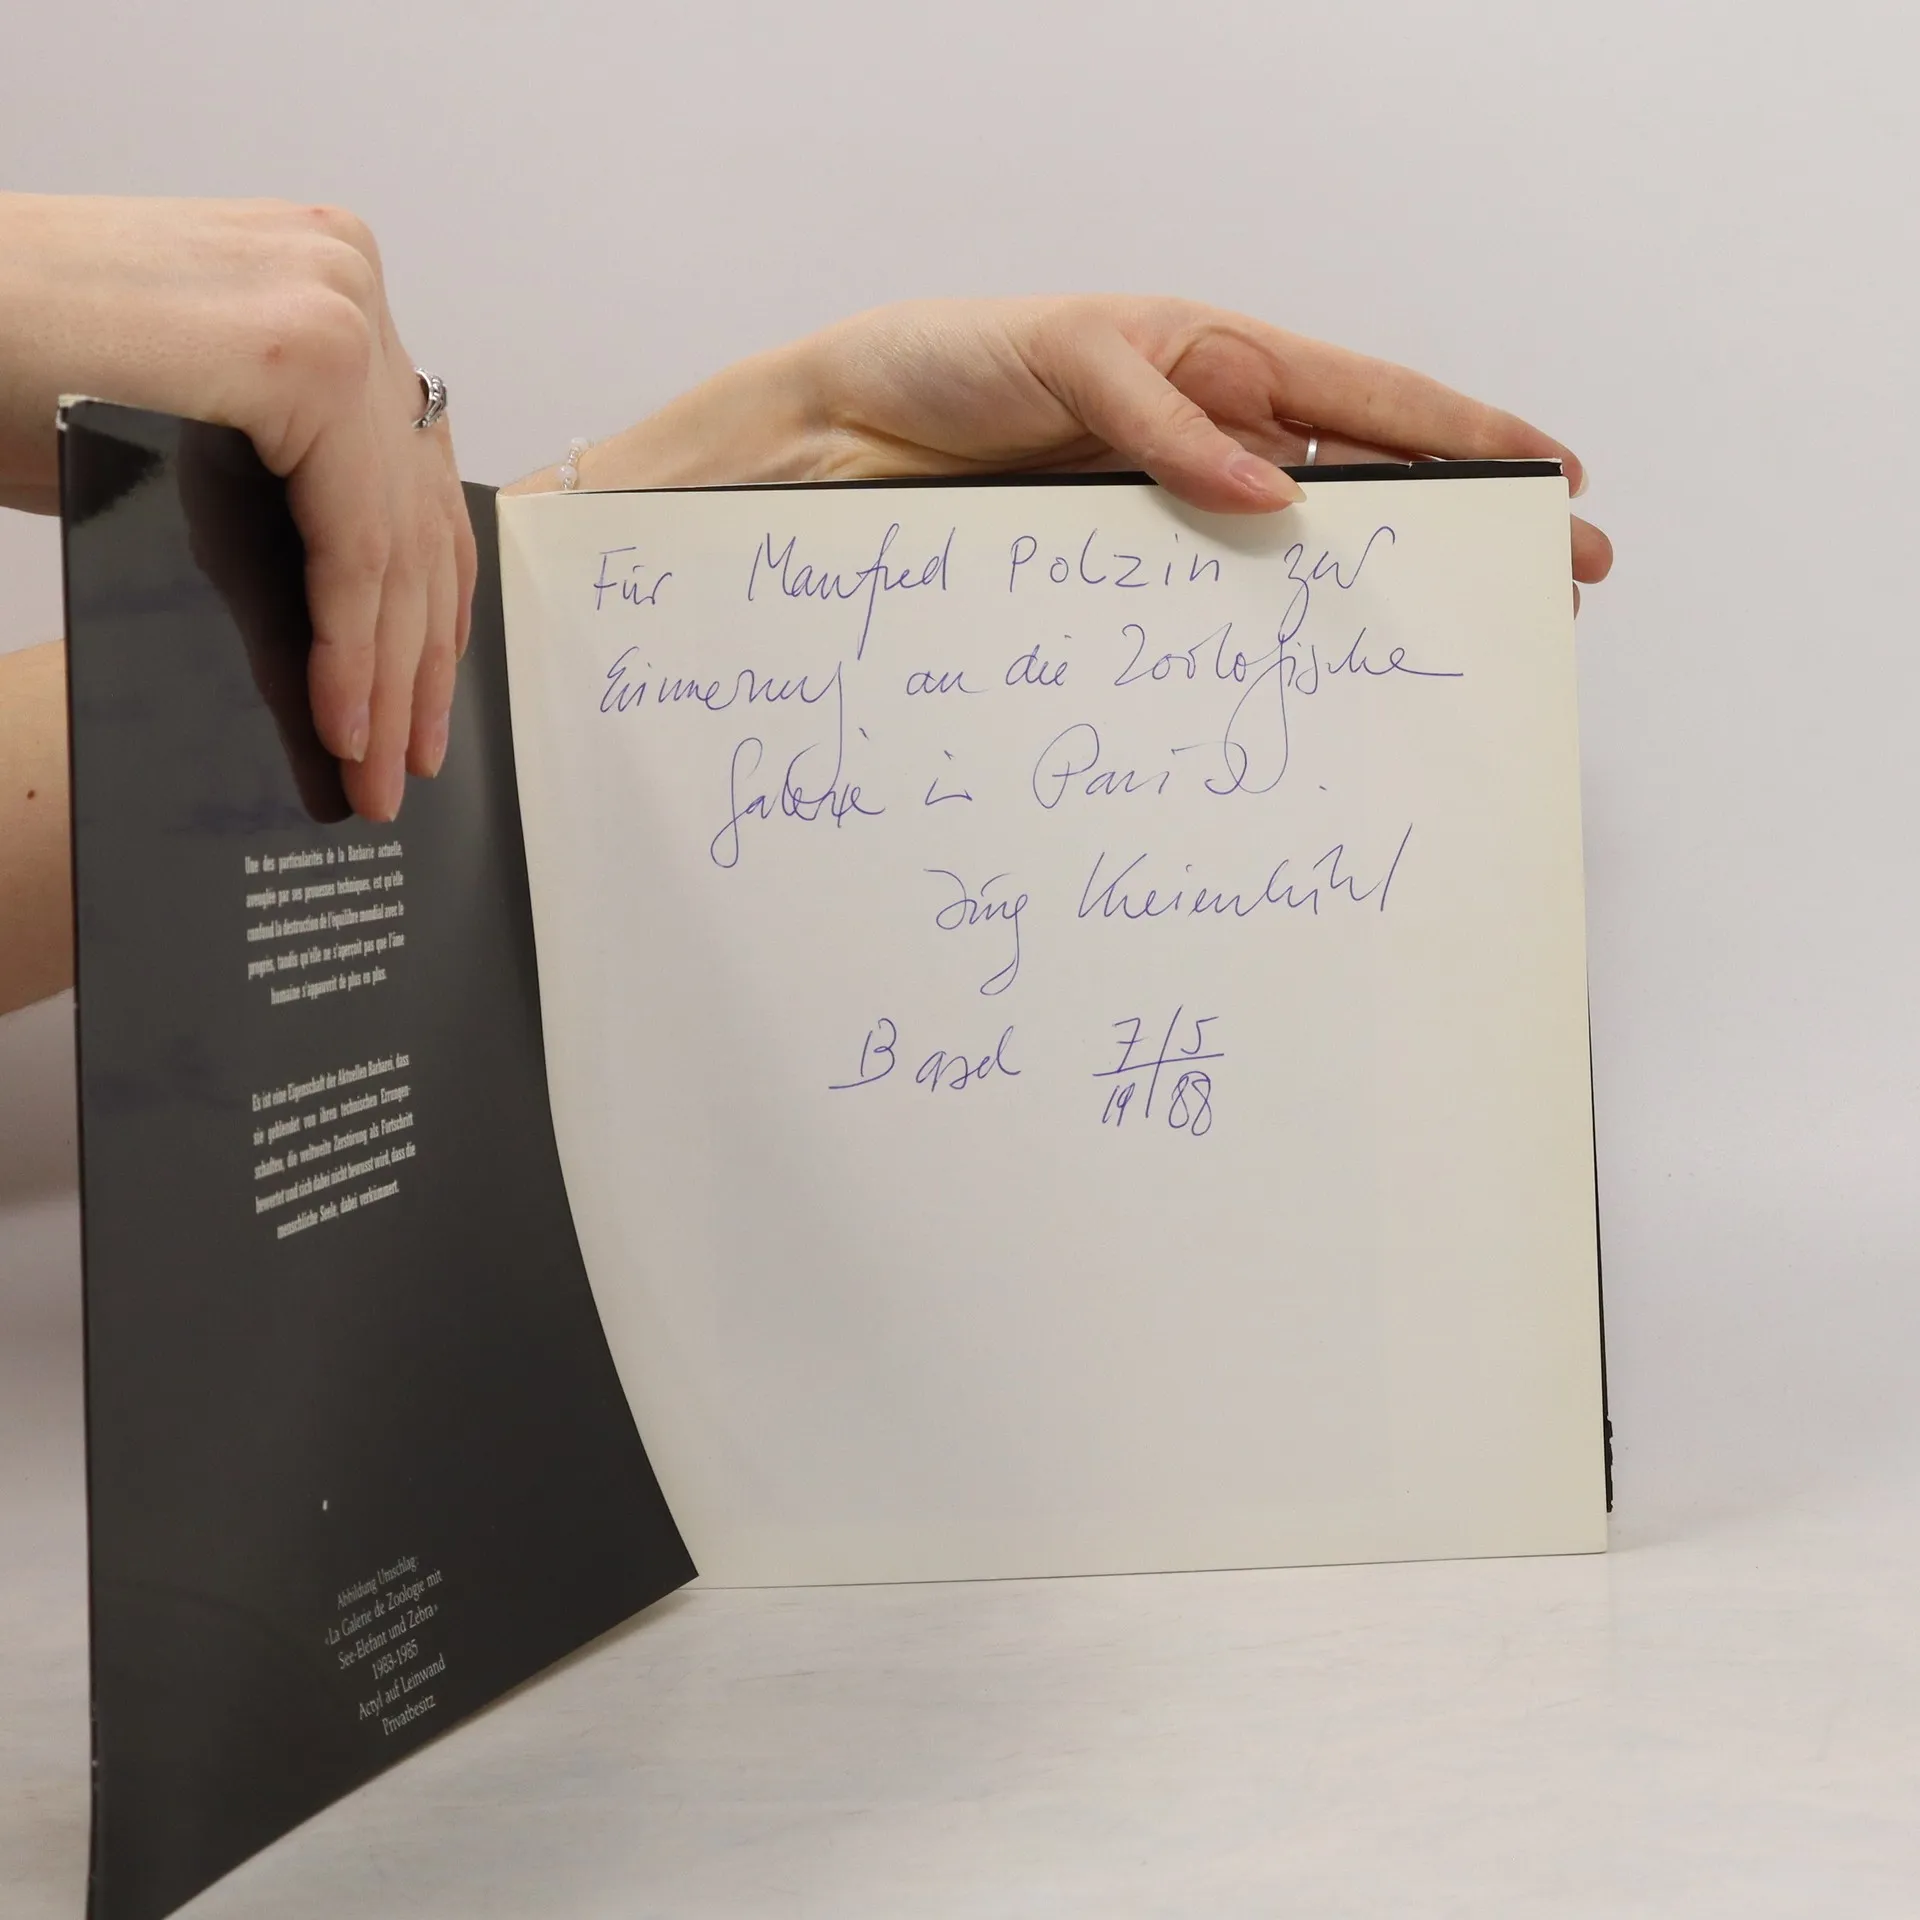 Une des particularités de la Barbarie actuelle,
aveuglée par ses prouesses techniques, est qu'elle
confond la destruction de l'équilibre mondial avec le
progrès, tandis qu'elle ne s'aperçoit pas que l'âme
humaine s'appauvrit de plus en plus.
Es ist eine Eigenschaft der Aktuellen Barbarei, dass
sie geblendet von ihren technischen Errungen-
schaften, die weltweite Zerstörung als Fortschritt
bewertet und sich dabei nicht bewusst wird, dass die
menschliche Seele, dabei verkümmert.
Abbildung Umschlag:
«La Galerie de Zoologie mit
See-Elefant und Zebra»
1983-1985
Actyl auf Leinwand
Privatbesitz
Für Manfred Polzin zur
Erinnerung an die Zoologische
Galerie in Paris.
Jürg Kreienbühl
Basel 7/5
19/88